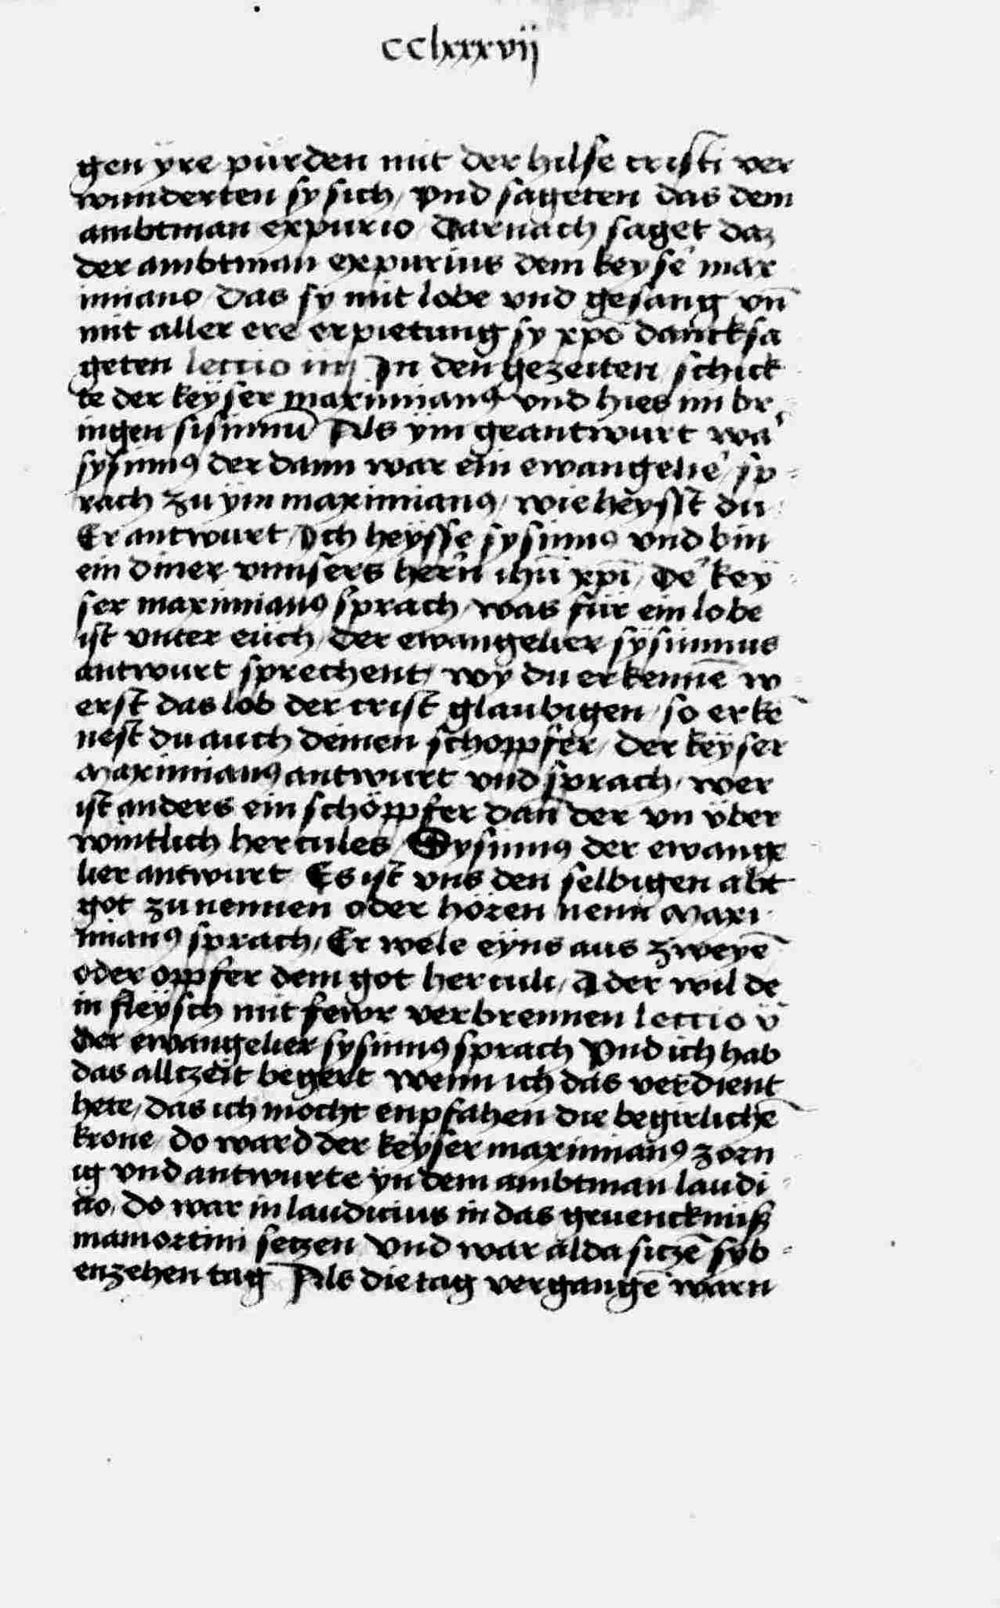 cclxxxvij
gen yre pürden mit der hilfe cristi ver
wunderten sy sich, Vnd sageten das dem
ambtman expurio Darnach saget daz
der ambtman expurius dem keyse᷑ max
imiano Das sy mit lobe vnd gesang vn̄
mit aller ere erpietung sy xp̄o dancksa
geten lectio iiij In den gezeiten schick
te der keÿser maximianꝰ vnd hies im br
ingen sisinnū Als ÿm geantwurt wa᷑
sysinnꝰ der dann war ein ewangelie᷑ sp
rach zu ÿm maximianus, wie heysst du
Er antwurt, Ich heÿsse sysinnꝰ vnd bin
ein diner vnnsers hern̄ ihū xp̄i, De᷑ keÿ
ser maximianꝰ sprach, was für ein lobe
ist vnter eüch, der ewangelier sÿsinnus
antwurt sprechent, wÿ du erkennē w
erst das lob der crist glaubigen, so erkē
nest du auch deinen schoppfer, der keÿser
Maximianꝰ antwurt vnd sprach, wer
ist anders ein schöppfer dan̄ der vn vber
wintlich hercules, Sysinnꝰ der ewange
lier antwurt Es ist vns den selbigen abt
got zu nennen oder hören nenn Maxi
mianꝰ sprach, Er wele eyns aus zweyē
oder oppfer dem got herculi, Ader wil de
in fleÿsch mit fewr verbrennen lectio v̄
der ewangelier sysinnꝰ sprach Vnd ich hab
das allczeit begert wenn ich das verdient
hete, das ich mocht enpfahen die begirlichē
krone, do ward der keÿser maximianꝰ zorn
ig vnd antwurte yn dem ambtman laudi
cio, do war in laudicius in das gevencknüß
mamortini setzen Vnd war alda siczē syb
enzehen tag Als die tag vergangē warn